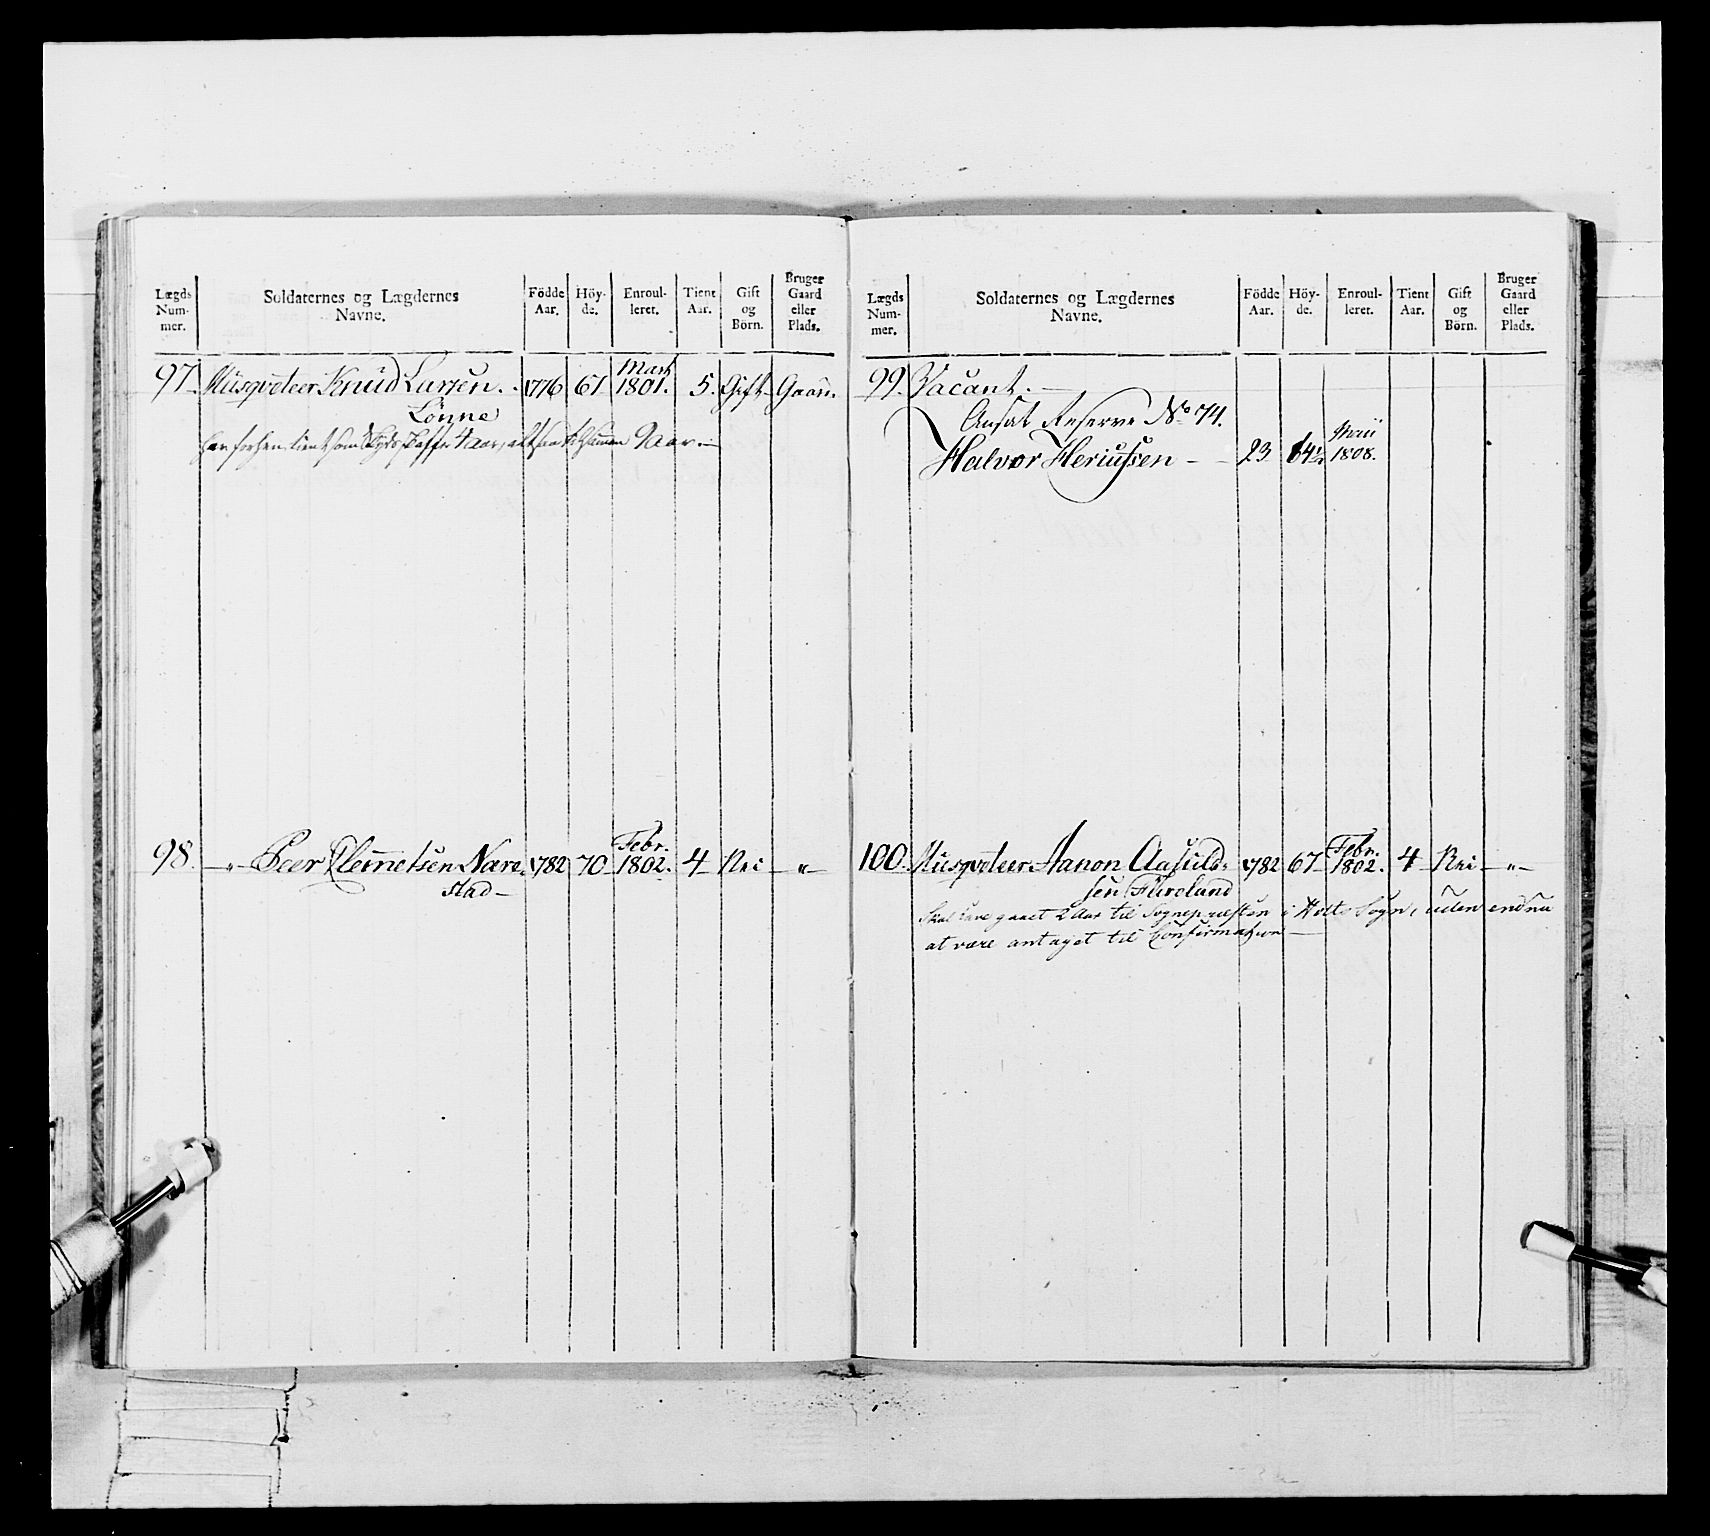 Lægds Num- mer. Soldaternes og Lægdernes Navne. Födde Aar. Höy- de. Enroul- leret. Tient Aar. Gift og Börn. Bruger Gaard eller Plads.
97. Musqveteer Knud Larsen. 1776 67 Mart 1801. 5. Gift Gaard.
Lönne
har forhen tient som 4 Aar, altsaa til Sammen 9 Aar.
98. — " — Peer Clemetsen Nare- 1782 70 Febr. 1802. 4 Nei — " —
stad —
Lægds Num- mer. Soldaternes og Lægdernes Navne. Födde Aar. Höy- de. Enroul- leret. Tient Aar. Gift og Börn. Bruger Gaard eller Plads.
99. Vacant. —
Ansat Reserve No 74.
Halvor Heriufsen — 23 64½ Maii 1808.
100. Musqveteer Aanon Aasuld- 1782 67 Febr. 1802. 4 Nei — " —
sen Fureland
Skal have gaaet 2 Aar til Sognepræsten i Holts Sogn, uden endnu
at være antaget til Confirmation —